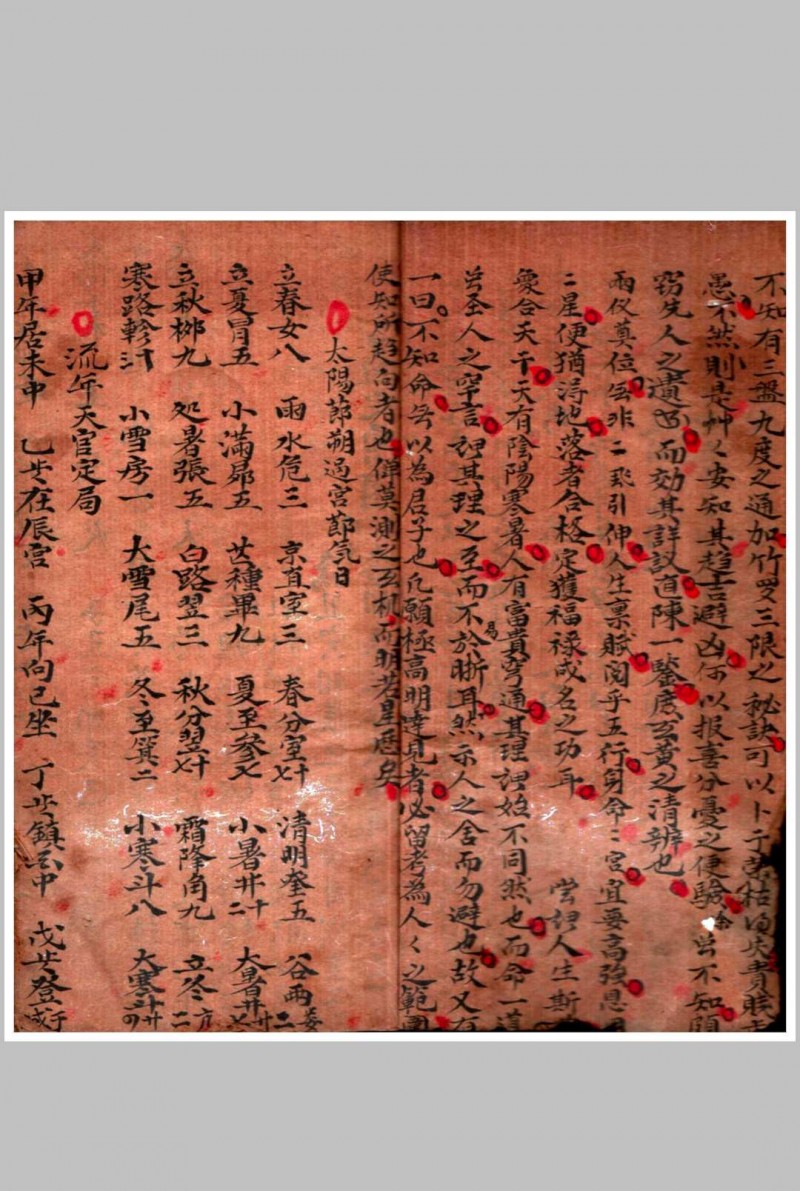 不知有三盤九度之通加竹罗三限之秘訣可以卜于荣枯得失貴賤
愚不然則是艸々安知其趋吉避凶何以报喜分憂之便驗 不知
窃先人之遺 而効其詳议直陳一鑒底玄黄之清辨也
兩仪奠位 非二 引伸人生禀賦 乎五行身命二宮宜要高強恩
二星便猶得地落者合格定獲福禄成名之功耳 嘗 人生斯
彙合天干天有陰陽寒暑人有富貴穷通其理 始不同然也而命一
圣人之空言 其理之至而不易於晰耳然示人之舍而勿避也故又有
一曰不知命无以為君子也凡願極高明達見者必留考為人々之範
使知所趋向者也俾莫测之玄机而明若星
太陽節朔過宮節气日
立春女八 雨水危三 京直室三 春分室十七 清明奎五 谷雨娄二
立夏胃五 小滿昴五 芒種畢九 夏至參七 小暑井十二 大暑井廿七
立秋柳九 处暑張五 白路翌三 秋分翌十七 霜降角九 立冬亢二
寒路軫 小雪房一 大雪尾五 冬至箕二 小寒斗八 大寒斗廿四
流年天官定局
甲年居未中 乙 在辰宮 丙年向巳坐 丁 鎮 中 戊 登于戌